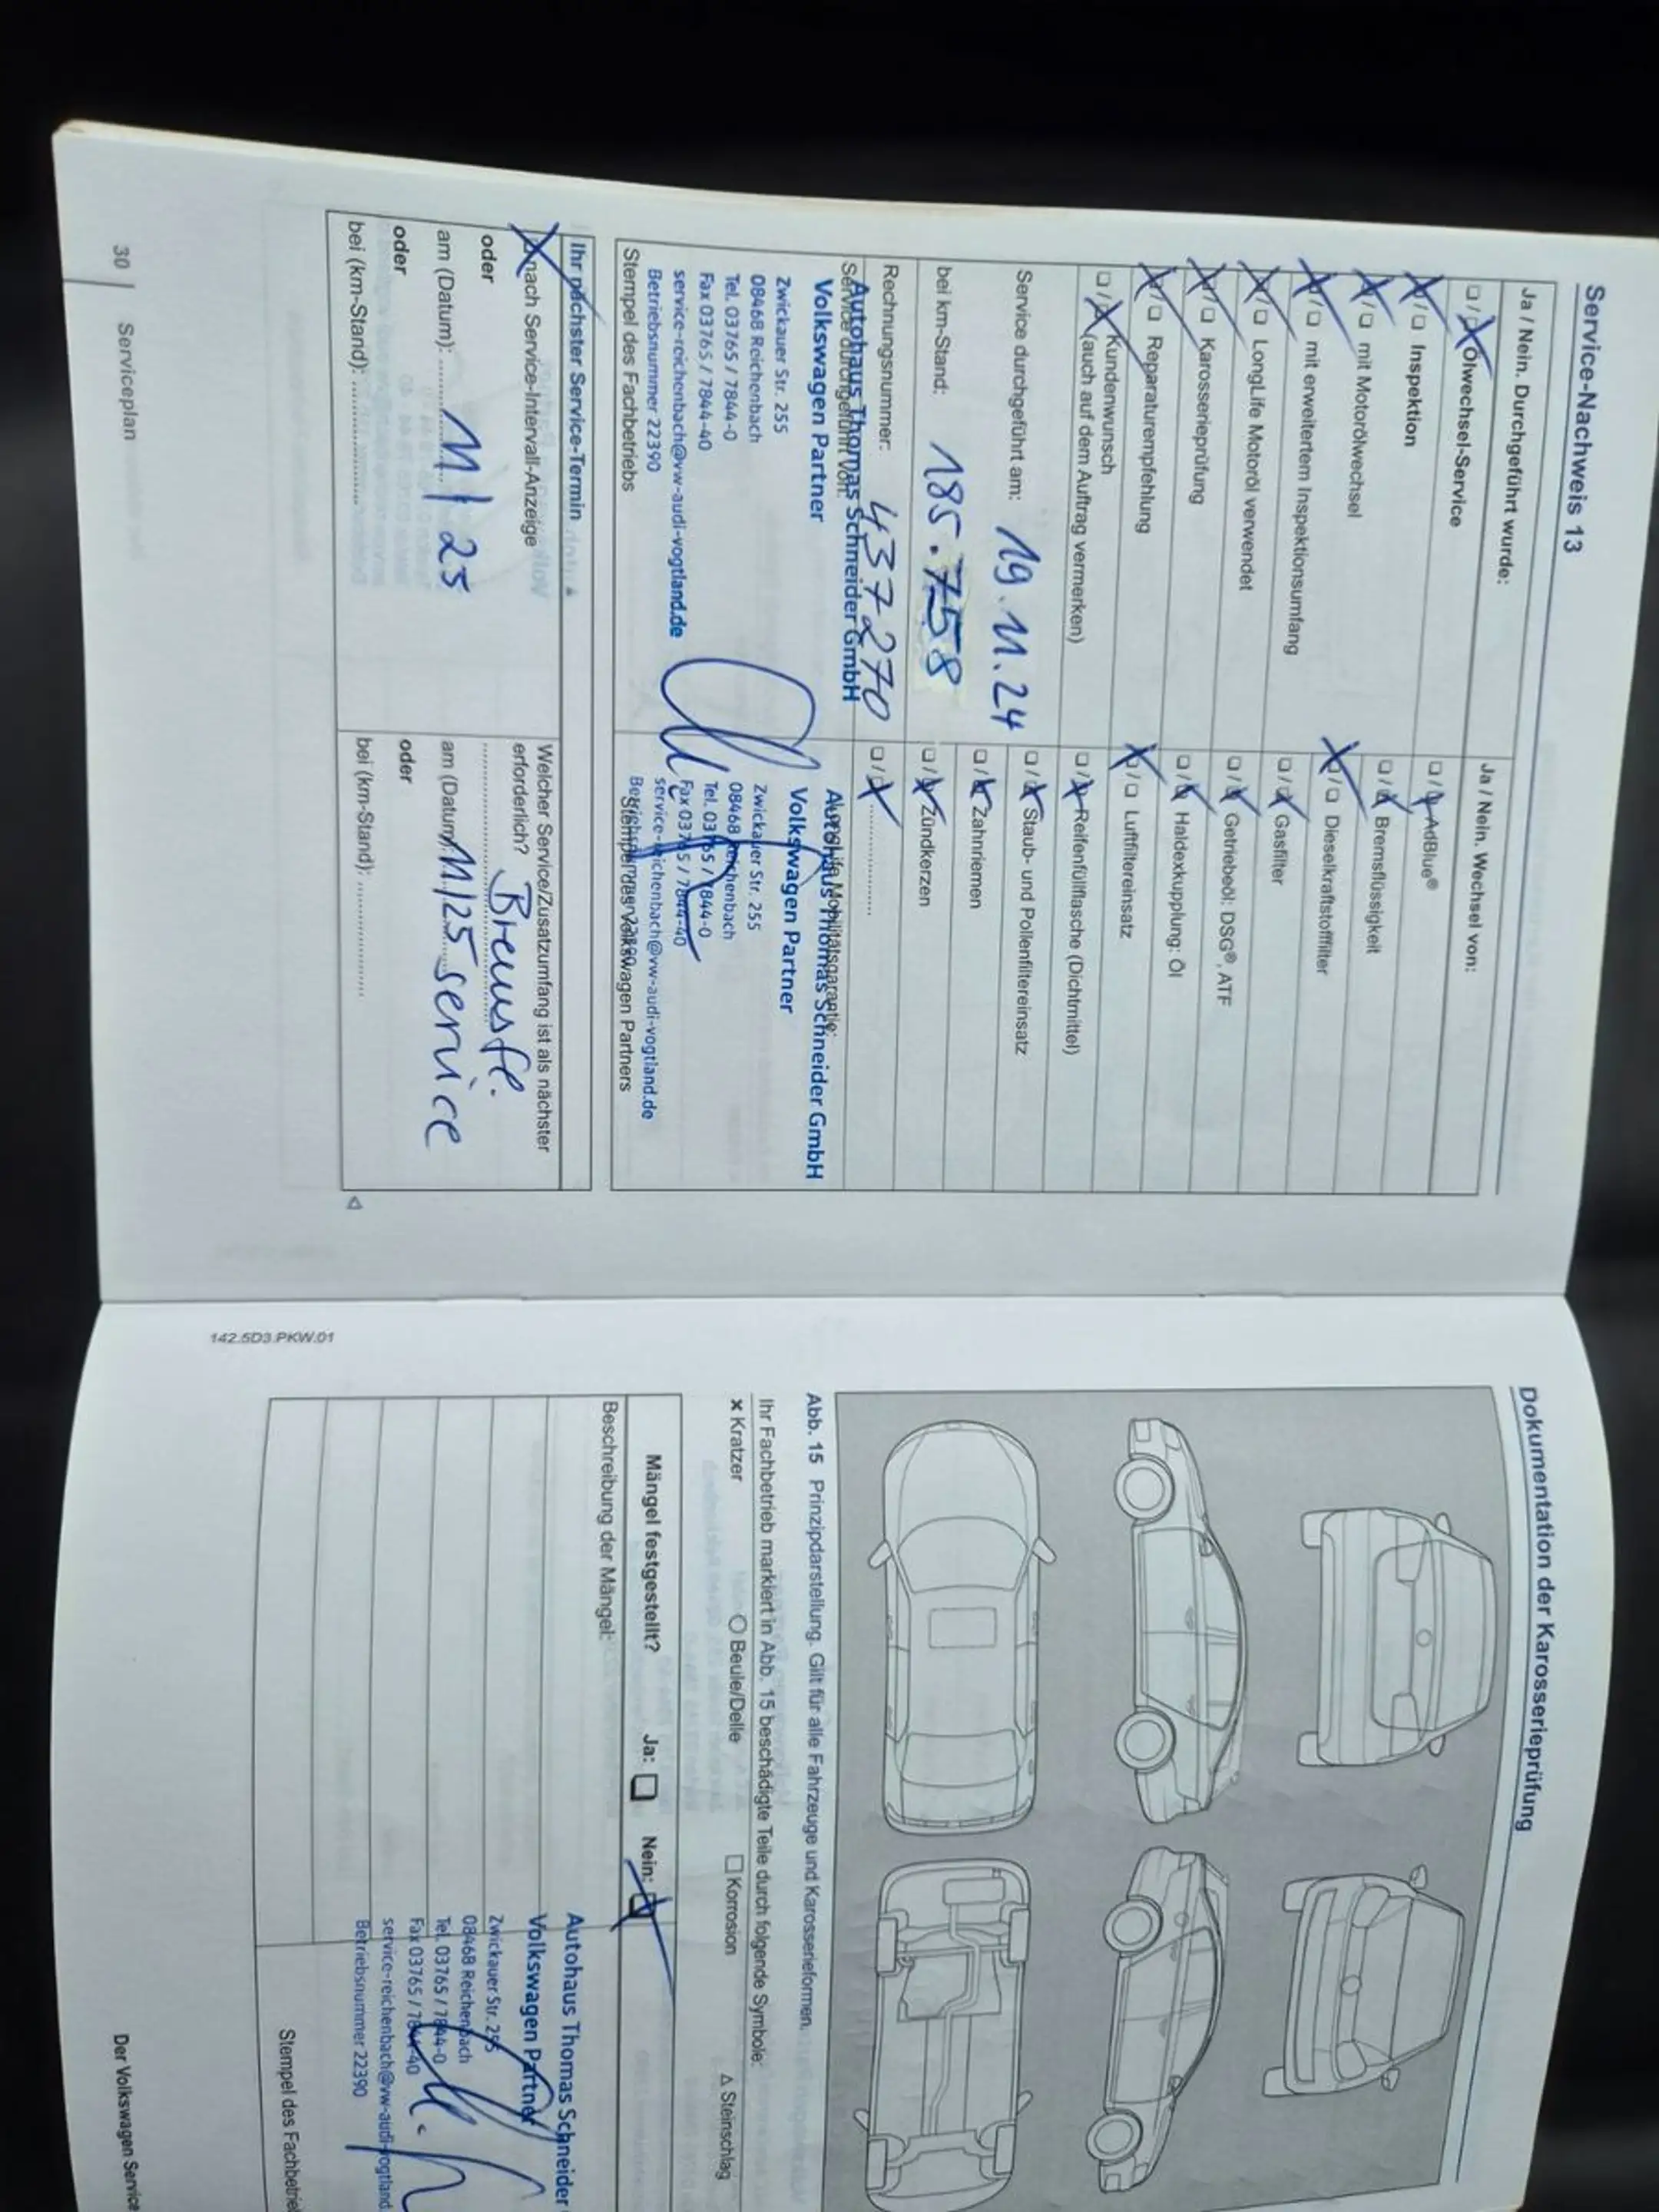 Service-Nachweis 13
Ja / Nein. Durchgeführt wurde:
Ja / Nein. Wechsel von:
Ölwechsel-Service
AdBlue®
Inspektion
Bremsflüssigkeit
mit Motorölwechsel
Dieselkraftstofffilter
mit erweitertem Inspektionsumfang
Gasfilter
LongLife Motoröl verwendet
Getriebeöl: DSG®, ATF
Karosserieprüfung
Haldexkupplung: Öl
Reparaturempfehlung
Luftfiltereinsatz
Kundenwunsch
(auch auf dem Auftrag vermerken)
Reifenfüllflasche (Dichtmittel)
Service durchgeführt am: 19.11.24
Staub- und Pollenfiltereinsatz
bei km-Stand: 185.758
Zahnriemen
Zündkerzen
Rechnungsnummer: 437270
Service durchgeführt von:
Autohaus Thomas Schneider GmbH
Volkswagen Partner
Zwickauer Str. 255
08468 Reichenbach
Tel. 03765 / 7844-0
Fax 03765 / 7844-40
service-reichenbach@vw-audi-vogtland.de
Betriebsnummer 22390
Stempel des Fachbetriebs
LongLife Mobilitätsgarantie:
Autohaus Thomas Schneider GmbH
Volkswagen Partner
Zwickauer Str. 255
08468 Reichenbach
Tel. 03765 / 7844-0
Fax 03765 / 7844-40
service-reichenbach@vw-audi-vogtland.de
Betriebsnummer 22390
Stempel des Volkswagen Partners
Ihr nächster Service-Termin
nach Service-Intervall-Anzeige
oder
am (Datum): 11/25
oder
bei (km-Stand):
Welcher Service/Zusatzumfang ist als nächster
erforderlich? Bremsfl.
service
am (Datum): 11/25
oder
bei (km-Stand):
30 Serviceplan
Dokumentation der Karosserieprüfung
Abb. 15 Prinzipdarstellung. Gilt für alle Fahrzeuge und Karosserieformen.
Ihr Fachbetrieb markiert in Abb. 15 beschädigte Teile durch folgende Symbole:
x Kratzer
○ Beule/Delle
□ Korrosion
△ Steinschlag
Mängel festgestellt? Ja: Nein:
Beschreibung der Mängel:
Autohaus Thomas Schneider
Volkswagen Partner
Zwickauer Str. 255
08468 Reichenbach
Tel. 03765 / 7844-0
Fax 03765 / 7844-40
service-reichenbach@vw-audi-vogtland
Betriebsnummer 22390
Stempel des Fachbetrie
142.5D3.PKW.01
Der Volkswagen Service